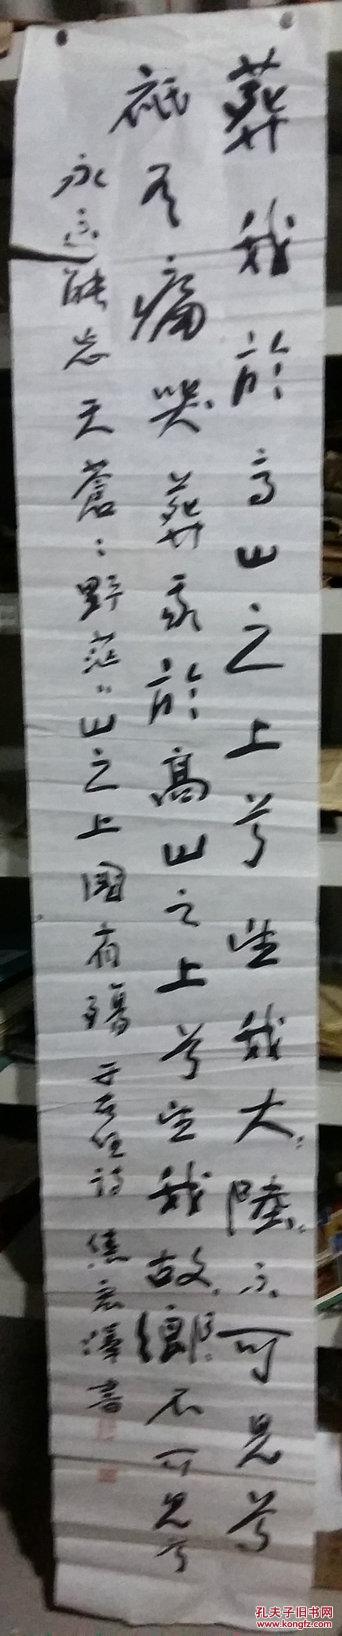 葬我於高山之上兮望我大陸大陸不可見兮
祇有痛哭葬我於高山之上兮望我故鄉故鄉不可見兮
永不能忘天蒼蒼野茫茫山之上國有殤 于右任诗 焦 書
孔夫子旧书网
www.kongfz.com